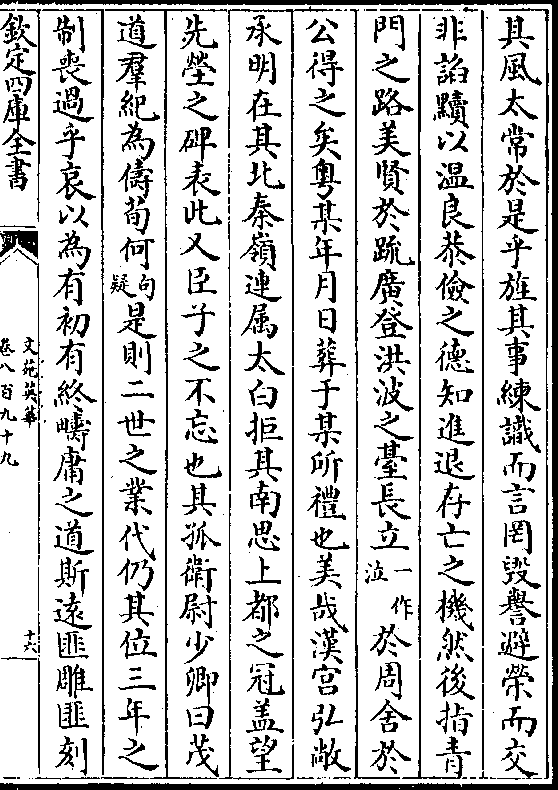 其風太常於是乎旌其事練識而言罔毀譽避榮而交
非諂黷以温良恭儉之德知進退存亡之機然後指青
門之路美賢於疏廣登洪波之臺長立一作泣於周舍於
公得之矣粤某年月日葬于某所禮也美哉漢宫弘敞
承明在其北秦嶺連属太白拒其南思上都之冠盖望
先塋之碑表此又臣子之不忘也其孤衛尉少卿曰茂
道羣紀為儔荀何句疑是則二世之業代仍其位三年之
制喪過乎哀以為有初有終疇庸之道斯遠匪雕匪刻
欽定四庫全書
文苑英華
卷八百九十九
十六